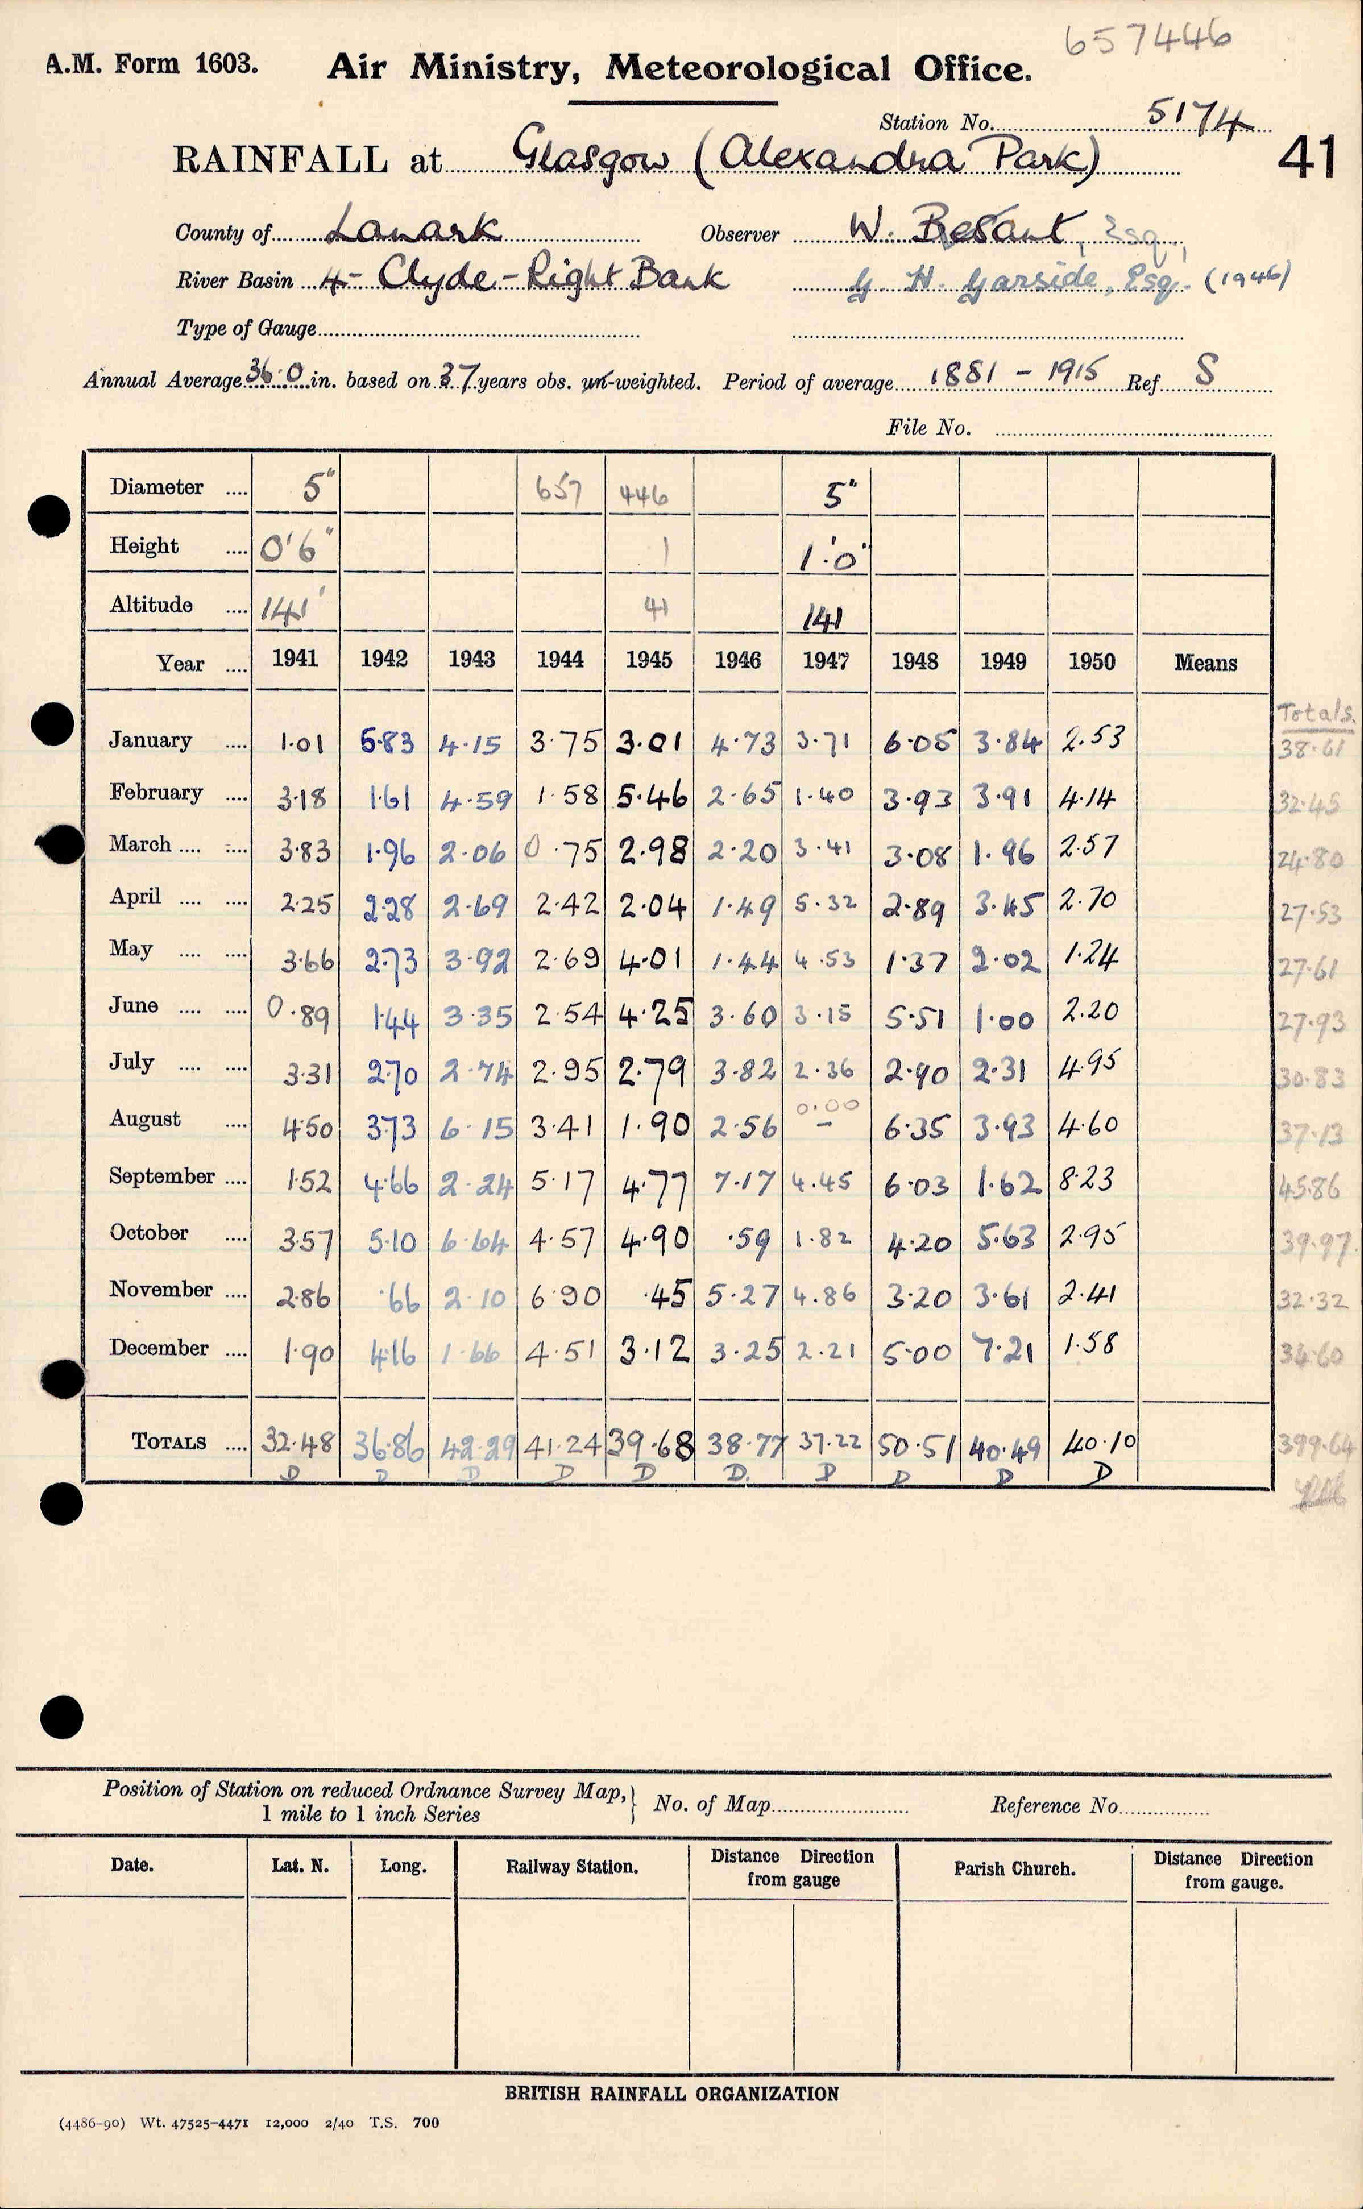 657446
A.M. Form 1603. Air Ministry, Meteorological Office.
Station No. 5174
RAINFALL at Glasgow (Alexandra Park) 41
County of Lanark Observer W. Besant, Esq.,
River Basin 4 - Clyde - Right Bank G. H. Garside, Esq. (1946)
Type of Gauge
Annual Average 36.0 in. based on 37 years obs. un-weighted. Period of average 1881 - 1915 Ref S
File No.
Diameter .... 5" 657 446 5"
Height .... 0'6" 1 1'.0"
Altitude .... 141' 41 141
Year .... 1941 1942 1943 1944 1945 1946 1947 1948 1949 1950 Means Totals.
January .... 1.01 5.83 4.15 3.75 3.01 4.73 3.71 6.05 3.84 2.53 38.61
February .... 3.18 1.61 4.59 1.58 5.46 2.65 1.40 3.93 3.91 4.14 32.45
March .... .... 3.83 1.96 2.06 0.75 2.98 2.20 3.41 3.08 1.96 2.57 24.80
April .... .... 2.25 2.28 2.69 2.42 2.04 1.49 5.32 2.89 3.45 2.70 27.53
May .... .... 3.66 2.73 3.92 2.69 4.01 1.44 4.53 1.37 2.02 1.24 27.61
June .... .... 0.89 1.44 3.35 2.54 4.25 3.60 3.15 5.51 1.00 2.20 27.93
July .... .... 3.31 2.70 2.74 2.95 2.79 3.82 2.36 2.90 2.31 4.95 30.83
0.00
August .... 4.50 3.73 6.15 3.41 1.90 2.56 - 6.35 3.93 4.60 37.13
September .... 1.52 4.66 2.24 5.17 4.77 7.17 4.45 6.03 1.62 8.23 45.86
October .... 3.57 5.10 6.64 4.57 4.90 .59 1.82 4.20 5.63 2.95 39.97
November .... 2.86 .66 2.10 6.90 .45 5.27 4.86 3.20 3.61 2.41 32.32
December .... 1.90 4.16 1.66 4.51 3.12 3.25 2.21 5.00 7.21 1.58 34.60
TOTALS .... 32.48 36.86 42.29 41.24 39.68 38.77 37.22 50.51 40.49 40.10 399.64
D D D D D D. D D D D
Position of Station on reduced Ordnance Survey Map, } No. of Map Reference No.
1 mile to 1 inch Series
Date. Lat. N. Long. Railway Station. Distance Direction from gauge Parish Church. Distance Direction from gauge.
BRITISH RAINFALL ORGANIZATION
(4486-90) Wt. 47525-4471 12,000 2/40 T.S. 700